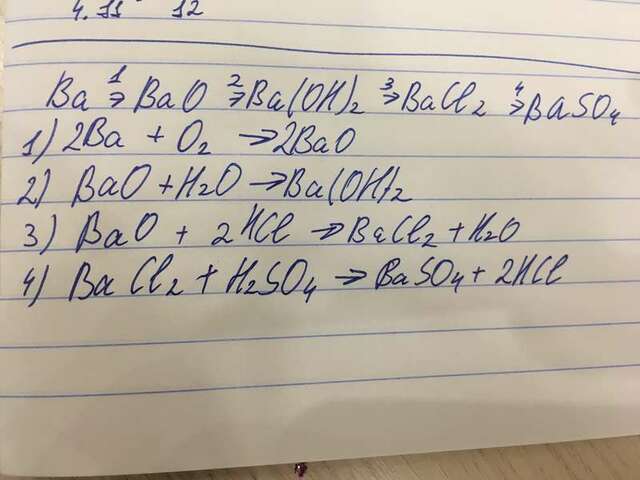 4.11 12
Ba →¹ BaO →² Ba(OH)₂ →³ BaCl₂ →⁴ BaSO₄
1) 2Ba + O₂ → 2BaO
2) BaO + H₂O → Ba(OH)₂
3) BaO + 2HCl → BaCl₂ + H₂O
4) BaCl₂ + H₂SO₄ → BaSO₄ + 2HCl